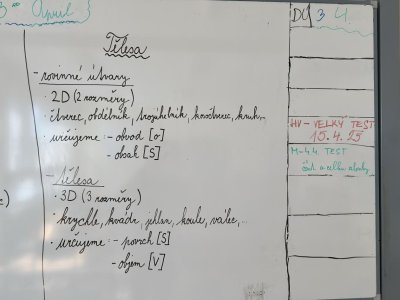 3. April
Tělesa
- rovinné útvary
· 2D (2 rozměry)
· čtverec, obdélník, trojúhelník, kosočtverec, kruh...
· určujeme: - obvod [o]
- obsah [S]
- tělesa
· 3D (3 rozměry)
· krychle, kvádr, jehlan, koule, válec,...
· určujeme: - povrch [S]
- objem [V]
DÚ 3
HV - VELKÝ TEST
15.4.25
M - 4.4. TEST